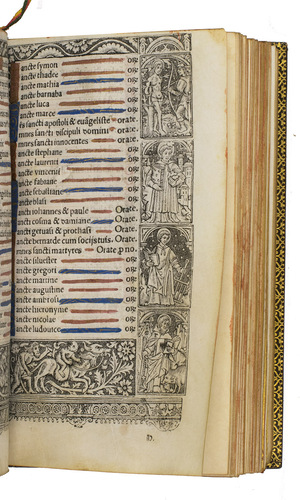 ancte symon orꝫ
ancte thadee orꝫ
ancte mathia orꝫ
ancte barnaba orꝫ
ancte luca orꝫ
ancte marce orꝫ
es sancti apostoli & euãgeliste Orate.
mnes sancti discipuli domini Orate.
mnes sancti innocentes Orate.
ancte stephane orꝫ
ancte laurenti orꝫ
ancte vincenti orꝫ
ancte fabiane orꝫ
ancte sebastiane orꝫ
ancte blasi orꝫ
ancti iohannes & paule Orate.
ancti cosma & damiane Orate.
ancti geruasi & prothasi Orate.
ancte bernarde cum socijs tuis. Orate.
mnes sancti martyres Orate p no.
ancte siluester orꝫ
ancte gregori orꝫ
ancte martine orꝫ
ancte augustine orꝫ
ancte ambrosi orꝫ
ancte hieronyme orꝫ
ancte nicolae orꝫ
ancte ludouice orꝫ